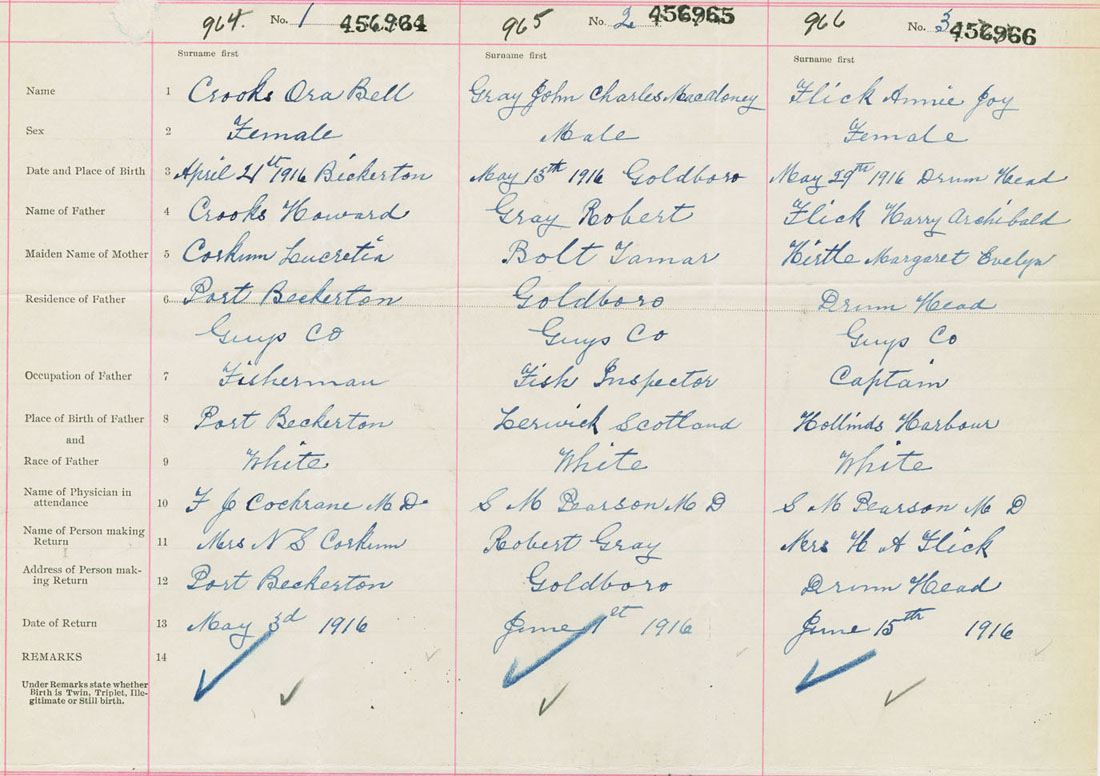 964. No. 1 456964 965 No. 2 456965 966 No. 3 456966
Surname first Surname first Surname first
Name 1 Crooks Ora Bell Gray John Charles Macaloney Flick Annie Joy
Sex 2 Female Male Female
Date and Place of Birth 3 April 21st 1916 Bickerton May 13th 1916 Goldboro May 29th 1916 Drum Head
Name of Father 4 Crooks Howard Gray Robert Flick Harry Archibald
Maiden Name of Mother 5 Corkum Lucretia Bolt Tamar Hirtle Margaret Evelyn
Residence of Father 6 Port Beckerton Goldboro Drum Head
Guys Co Guys Co Guys Co
Occupation of Father 7 Fisherman Fish Inspector Captain
Place of Birth of Father 8 Port Beckerton Lerwick Scotland Harbour
and
Race of Father 9 White White White
Name of Physician in
attendance 10 F J Cochrane M D S M Pearson M D S M Pearson M D
Name of Person making
Return 11 Mrs N S Corkum Robert Gray Mrs H A Flick
Address of Person mak-
ing Return 12 Port Beckerton Goldboro Drum Head
Date of Return 13 May 3d 1916 June 1st 1916 June 15th 1916
REMARKS 14
Under Remarks state whether
Birth is Twin, Triplet, Ille-
gitimate or Still birth.